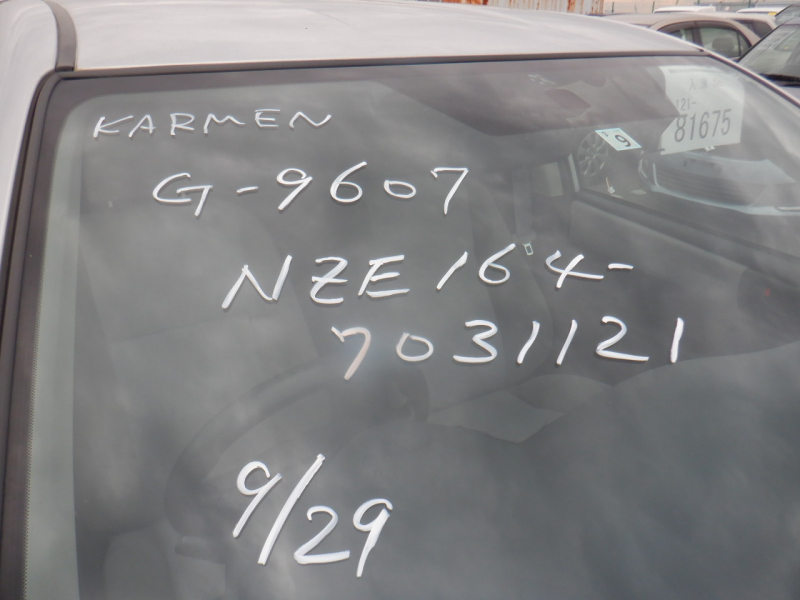 KARMEN
G-9607
NZE164-
7031121
9/29
121-
81675
9